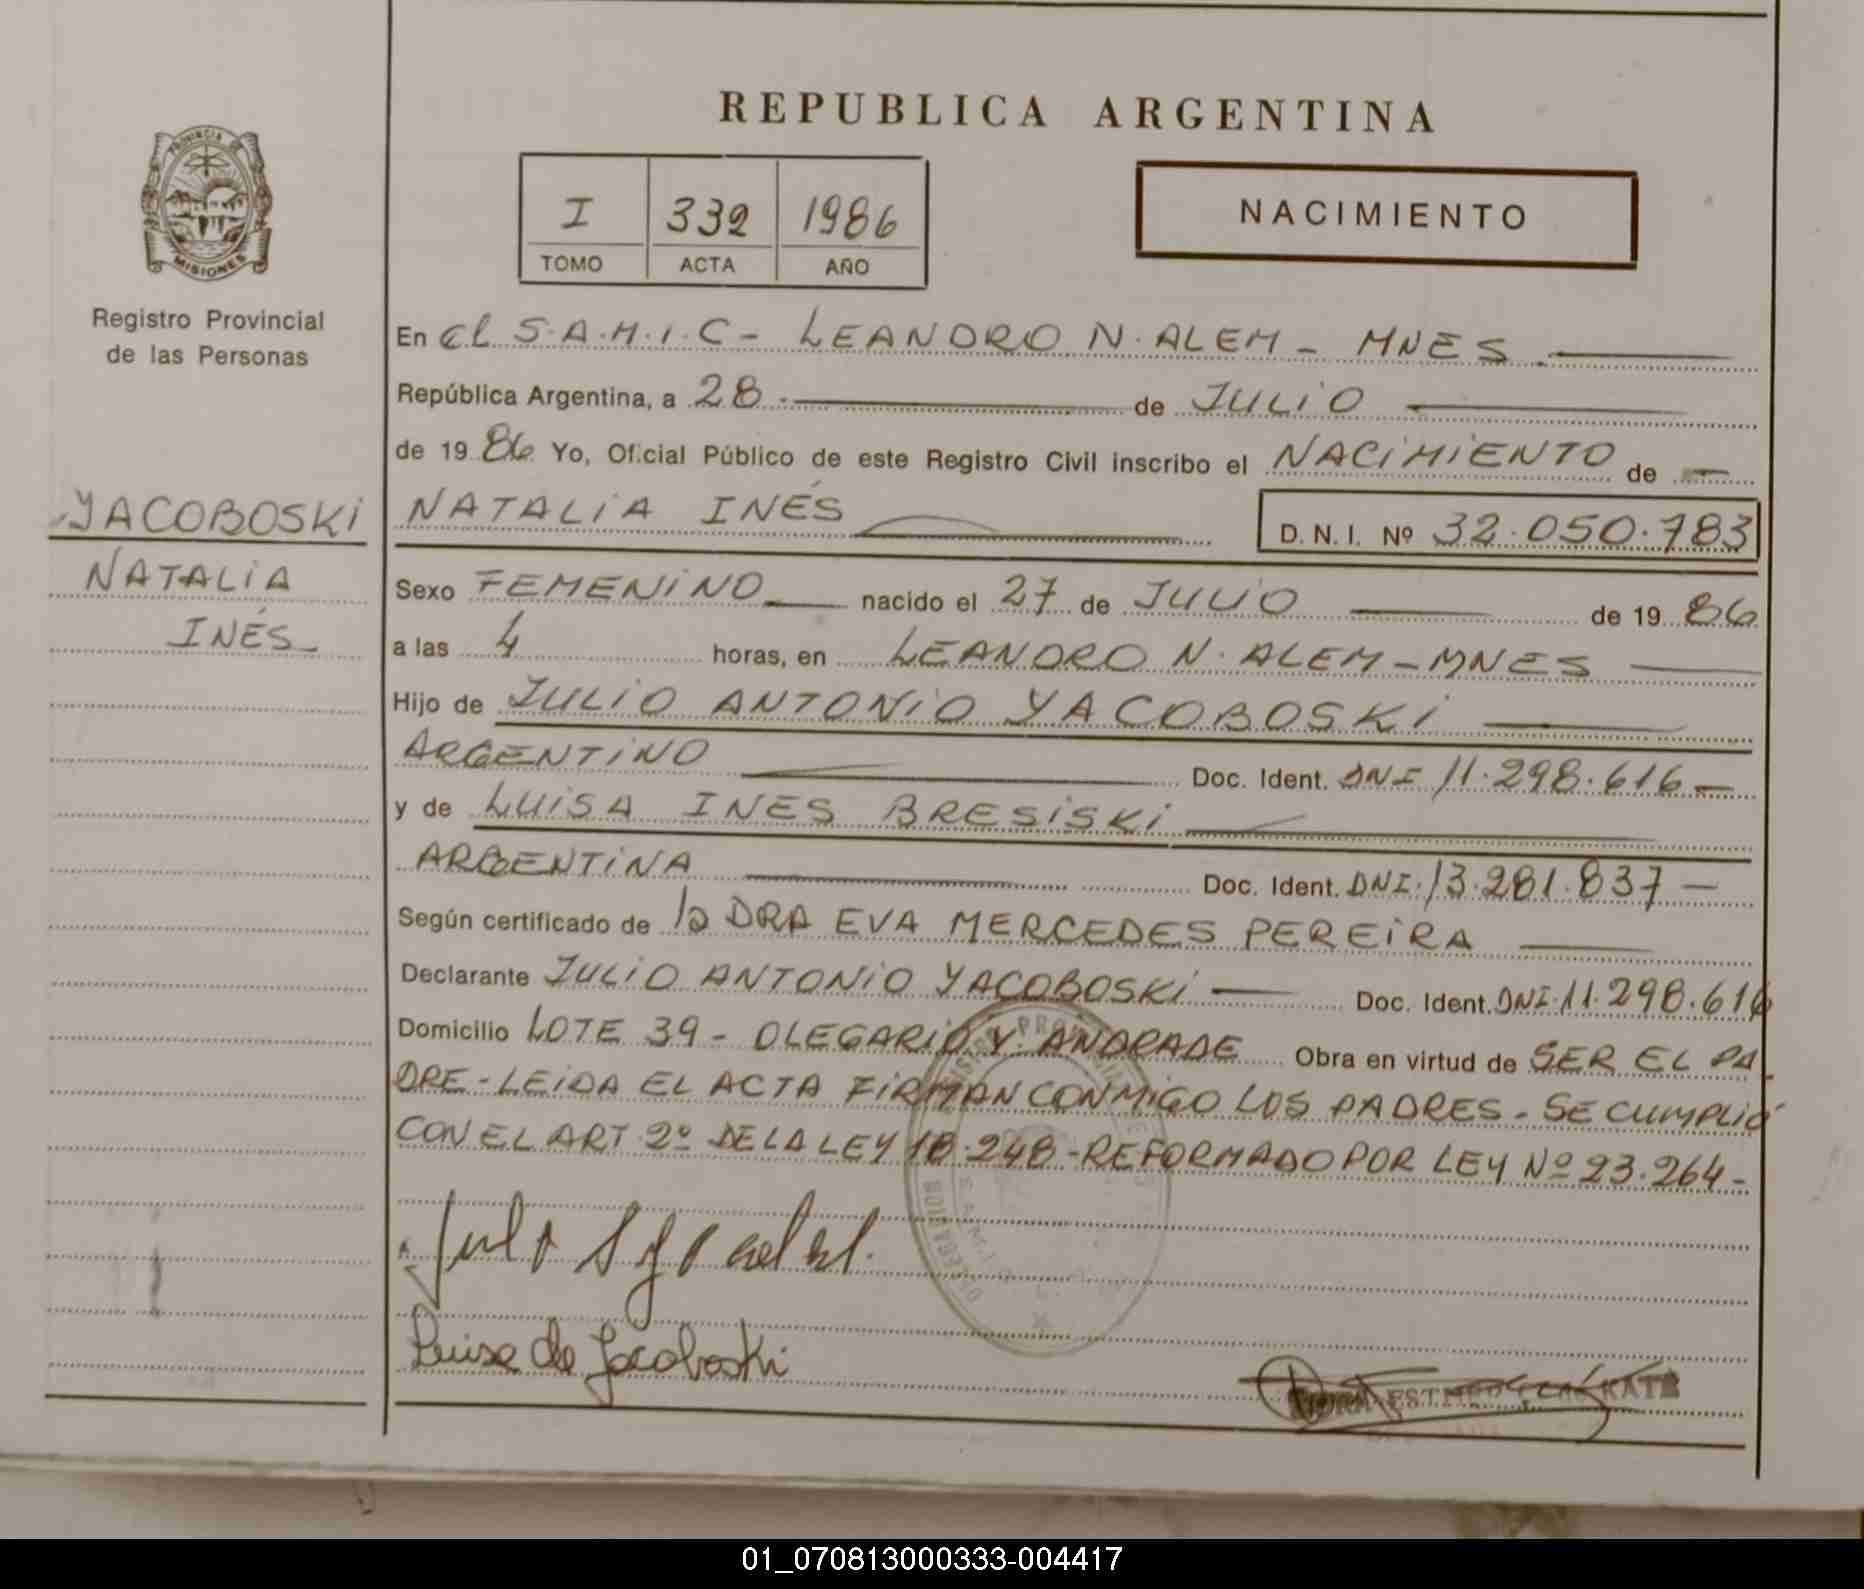 REPUBLICA ARGENTINA
PROVINCIA DE
MISIONES
Registro Provincial
de las Personas
I 332 1986
TOMO ACTA AÑO
NACIMIENTO
En el S.A.M.I.C - LEANDRO N. ALEM - MNES.
República Argentina, a 28 de JULIO
de 19 86 Yo, Oficial Público de este Registro Civil inscribo el NACIMIENTO de
YACOBOSKI
NATALIA
INÉS
NATALIA INÉS D. N. I. Nº 32.050.783
Sexo FEMENINO nacido el 27 de JULIO de 19 86
a las 4 horas, en LEANDRO N. ALEM - MNES
Hijo de JULIO ANTONIO YACOBOSKI
ARGENTINO Doc. Ident. DNI 11.298.616
y de LUISA INES BRESISKI
ARGENTINA Doc. Ident. DNI. 13.281.837
Según certificado de la DRA EVA MERCEDES PEREIRA
Declarante JULIO ANTONIO YACOBOSKI Doc. Ident. DNI. 11.298.616
Domicilio LOTE 39 - OLEGARIO V. ANDRADE Obra en virtud de SER EL PA
DRE - LEIDA EL ACTA FIRMAN CONMIGO LOS PADRES - SE CUMPLIÓ
CON EL ART. 2º DE LA LEY 18.248 - REFORMADO POR LEY Nº 23.264 -
Luisa de Jacoboski
01_070813000333-004417